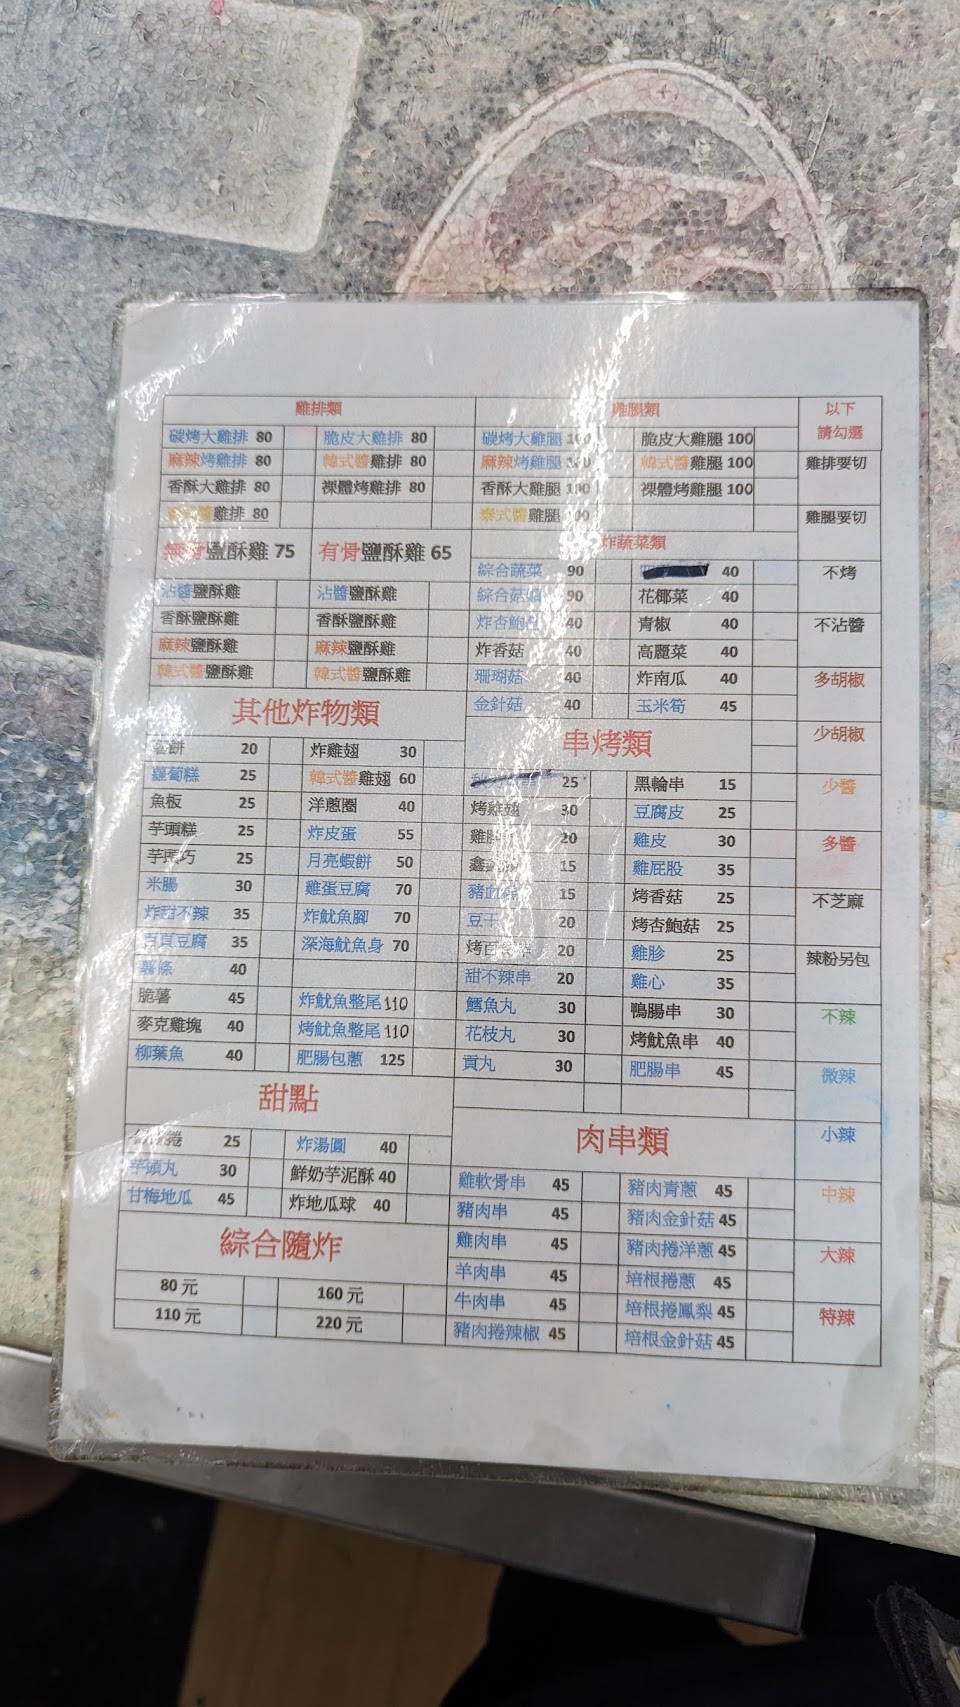 雞排類
碳烤大雞排 80 脆皮大雞排 80
麻辣烤雞排 80 韓式醬雞排 80
香酥大雞排 80 裸體烤雞排 80
泰式醬雞排 80
無骨鹽酥雞 75 有骨鹽酥雞 65
沾醬鹽酥雞 沾醬鹽酥雞
香酥鹽酥雞 香酥鹽酥雞
麻辣鹽酥雞 麻辣鹽酥雞
韓式醬鹽酥雞 韓式醬鹽酥雞
其他炸物類
20 炸雞翅 30
蘿蔔糕 25 韓式醬雞翅 60
魚板 25 洋蔥圈 40
芋頭糕 25 炸皮蛋 55
芋頭巧 25 月亮蝦餅 50
米腸 30 雞蛋豆腐 70
炸甜不辣 35 炸魷魚腳 70
百頁豆腐 35 深海魷魚身 70
薯條 40
脆薯 45 炸魷魚整尾 110
麥克雞塊 40 烤魷魚整尾 110
柳葉魚 40 肥腸包蔥 125
甜點
25 炸湯圓 40
芋頭丸 30 鮮奶芋泥酥 40
甘梅地瓜 45 炸地瓜球 40
綜合隨炸
80 元 160 元
110 元 220 元
雞腿類
碳烤大雞腿 100 脆皮大雞腿 100
麻辣烤雞腿 100 韓式醬雞腿 100
香酥大雞腿 100 裸體烤雞腿 100
泰式醬雞腿 100
炸蔬菜類
綜合蔬菜 90 40
綜合菇類 90 花椰菜 40
炸杏鮑菇 40 青椒 40
炸香菇 40 高麗菜 40
珊瑚菇 40 炸南瓜 40
金針菇 40 玉米筍 45
串烤類
25 黑輪串 15
烤雞翅 30 豆腐皮 25
20 雞皮 30
15 雞屁股 35
豬血糕 15 烤香菇 25
豆干 20 烤杏鮑菇 25
20 雞胗 25
甜不辣串 20 雞心 35
鱈魚丸 30 鴨腸串 30
花枝丸 30 烤魷魚串 40
貢丸 30 肥腸串 45
肉串類
雞軟骨串 45 豬肉青蔥 45
豬肉串 45 豬肉金針菇 45
雞肉串 45 豬肉捲洋蔥 45
羊肉串 45 培根捲蔥 45
牛肉串 45 培根捲鳳梨 45
豬肉捲辣椒 45 培根金針菇 45
以下
請勾選
雞排要切
雞腿要切
不烤
不沾醬
多胡椒
少胡椒
少醬
多醬
不芝麻
辣粉另包
不辣
微辣
小辣
中辣
大辣
特辣